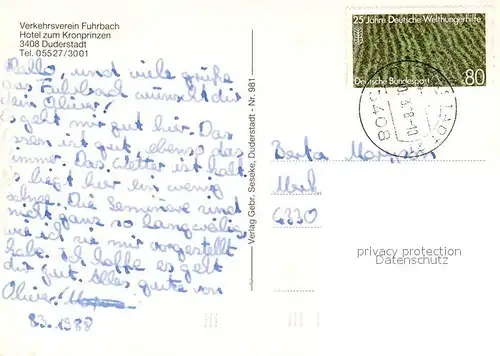 Verkehrsverein Fuhrbach
Hotel zum Kronprinzen
3408 Duderstadt
Tel. 05527/3001
Hallo, und viele grüße
aus Fuhrbach wünscht dir
dein Olivier!
Es geht mir gut hier. Das
essen ist gut ebenso das
Zimmer. Das Wetter ist kalt
es liegt hier ein wenig
schnee. Die Seminare sind
nicht ganz so langweilig
wie ich sie mir vorgestellt
habe. Ich hoffe es geht
dir gut. Alles gute von
Olivier
8.3.1988
Verlag Gebr. Seseke, Duderstadt - Nr. 981
25 Jahre Deutsche Welthungerhilfe
Deutsche Bundespost 80
3408
Berta
6330
privacy protection
Datenschutz